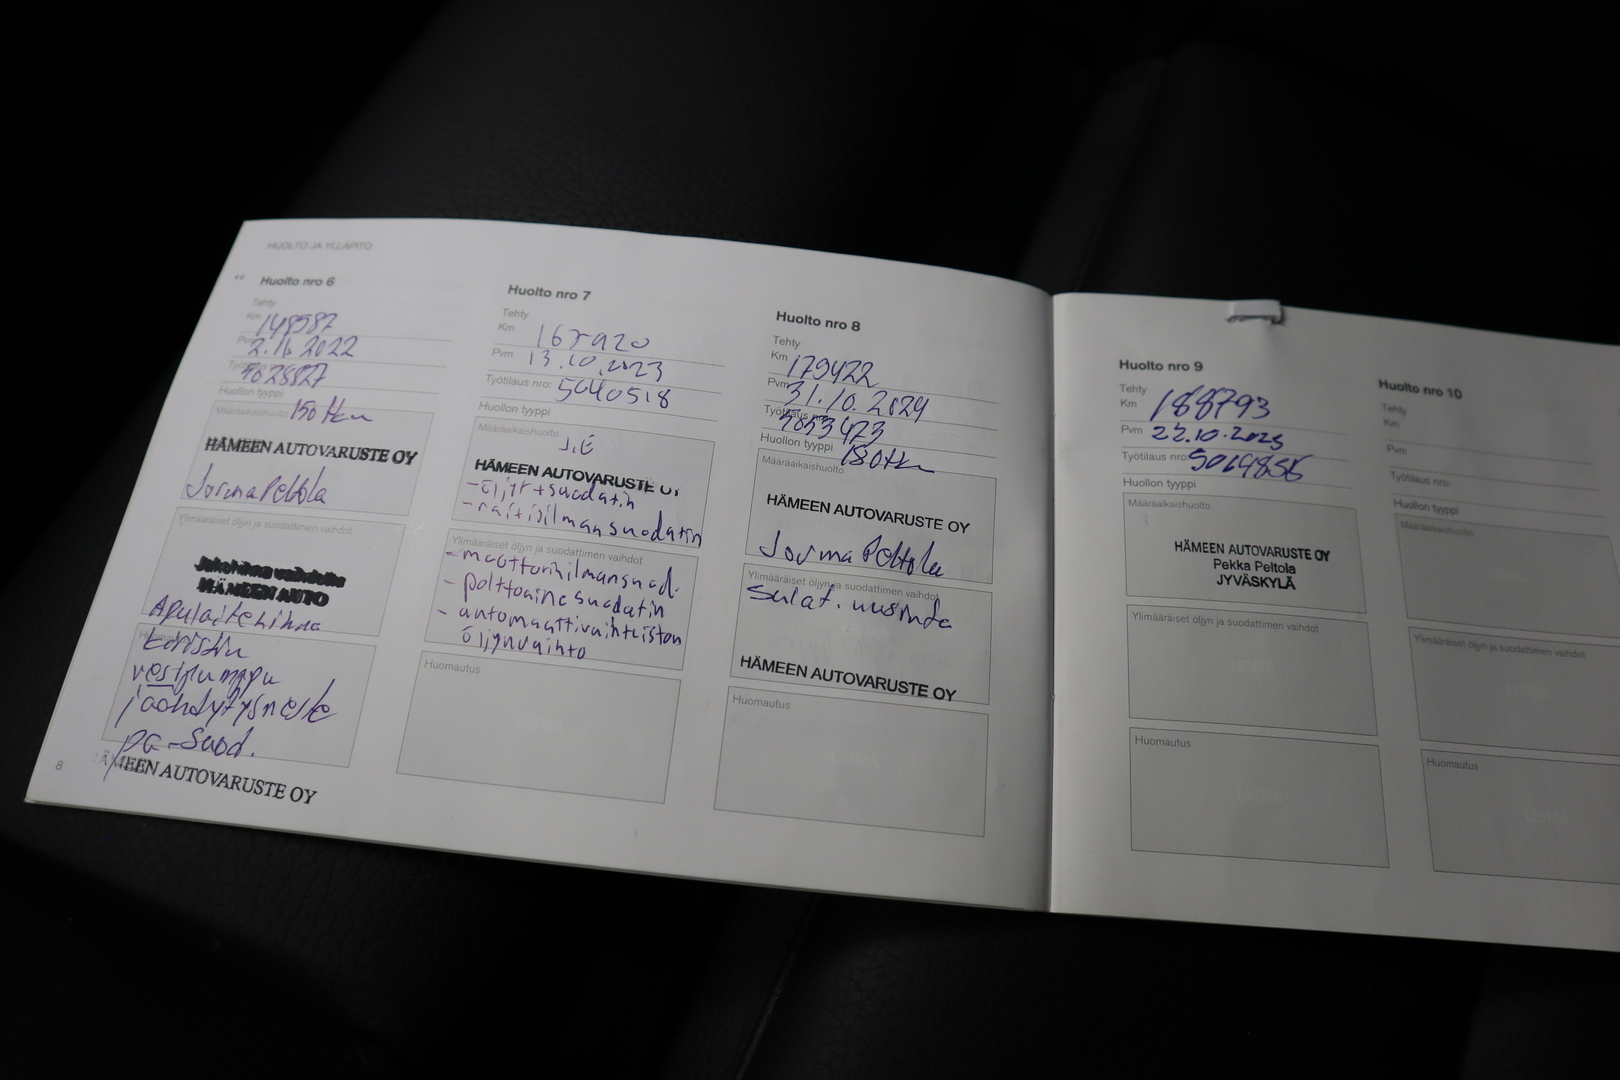 HUOLTO JA YLLÄPITO
Huolto nro 6
Tehty
Km 148587
Pvm 2.16 2022
5028827
Huollon tyyppi
Määräaikaishuolto 150 tkm
HÄMEEN AUTOVARUSTE OY
Jorma Peltola
Ylimääräiset öljyn ja suodattimen vaihdot
Jakohihna vaihdettu
HÄMEEN AUTO
Apulaitehihna
kiristin
vesipumppu
jäähdytysneste
pa-Suod.
HÄMEEN AUTOVARUSTE OY
8
Huolto nro 7
Tehty
Km
Pvm 13.10.2023
Työtilaus nro: 5040518
Huollon tyyppi
Määräaikaishuolto
J.E
HÄMEEN AUTOVARUSTE OY
- öljyt+suodatin
- raitisilmansuodatin
Ylimääräiset öljyn ja suodattimen vaihdot
- moottorinilmansuod.
- polttoainesuodatin
- automaattivaihteiston
öljynvaihto
Huomautus
Huolto nro 8
Tehty
Km 179422
Pvm 31.10.2024
Työtilaus 5053473
Huollon tyyppi 180tkm
Määräaikaishuolto
HÄMEEN AUTOVARUSTE OY
Jorma Peltola
Ylimääräiset öljyn ja suodattimen vaihdot
Sulat. uusinta
HÄMEEN AUTOVARUSTE OY
Huomautus
Huolto nro 9
Tehty
Km 188793
Pvm 22.10.2025
Työtilaus nro: 5064856
Huollon tyyppi
Määräaikaishuolto
HÄMEEN AUTOVARUSTE OY
Pekka Peltola
JYVÄSKYLÄ
Ylimääräiset öljyn ja suodattimen vaihdot
Huomautus
Huolto nro 10
Tehty
Km
Pvm
Työtilaus nro:
Huollon tyyppi
Määräaikaishuolto
Ylimääräiset öljyn ja suodattimen vaihdot
Huomautus